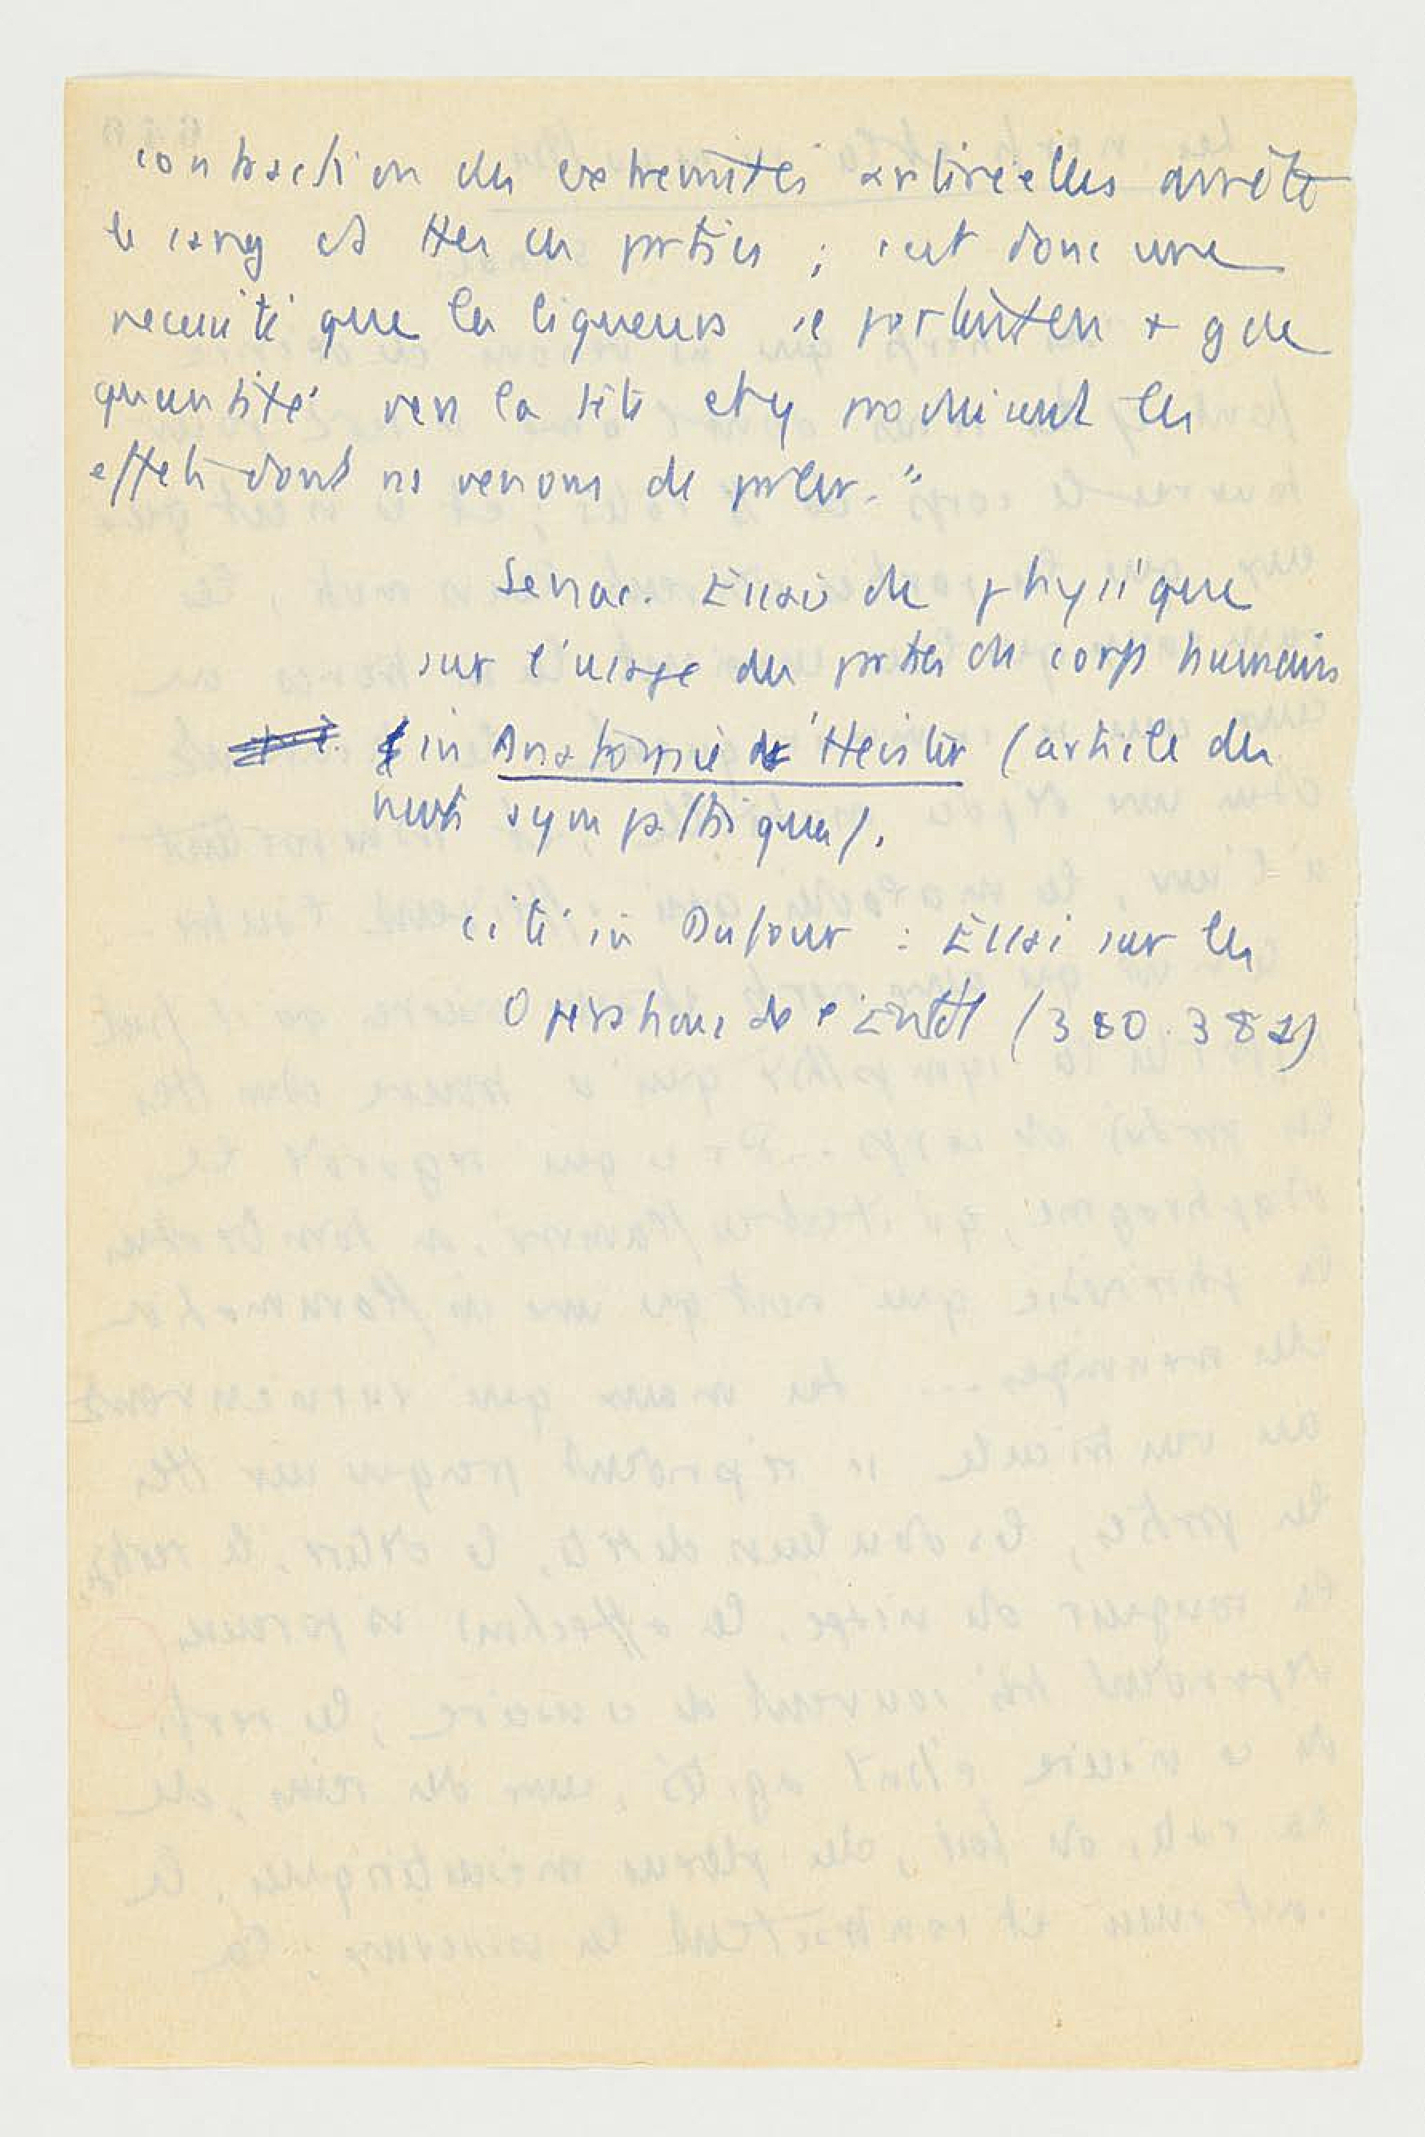 contraction des extremités artérielles arrête
le sang ds ttes ces parties ; c'est donc une
necessité que les liqueurs se portent en + gde
quantité vers la tête et y produisent les
effets dont ns venons de parler."
Senac. Essai de physique
sur l'usage des parties du corps humain
in Anatomie d'Heister (article des
nerfs sympathiques).
cité in Dufour : Essai sur les
Operations de l'Entdt (380.382)